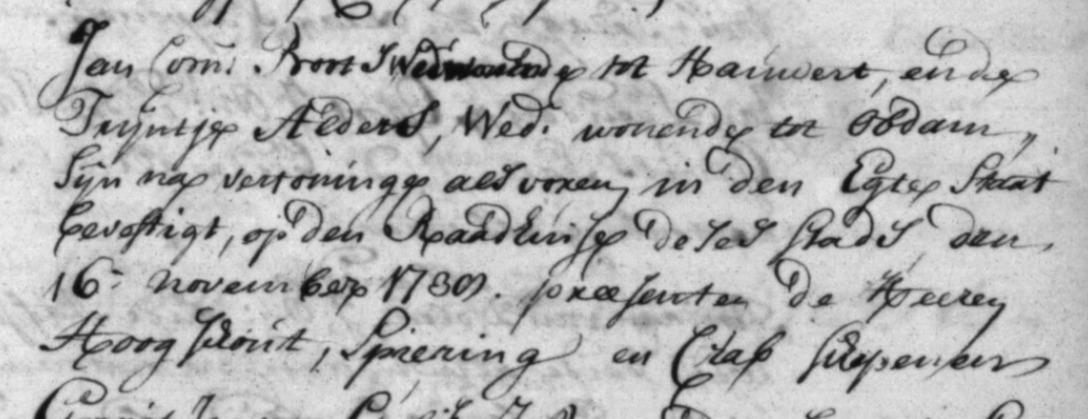 Jan Corn: Root Wed wonende tot Hauwert, ende
Trijntje Alders, Wed. wonende tot obdam,,
sijn na vertoninge als voren, in den Egte Staat
bevestigt, op den Raadhuijse deses stads den
16: november 1730. præsenten de Heeren
Hoog schout, Spiering en Claß schepenen